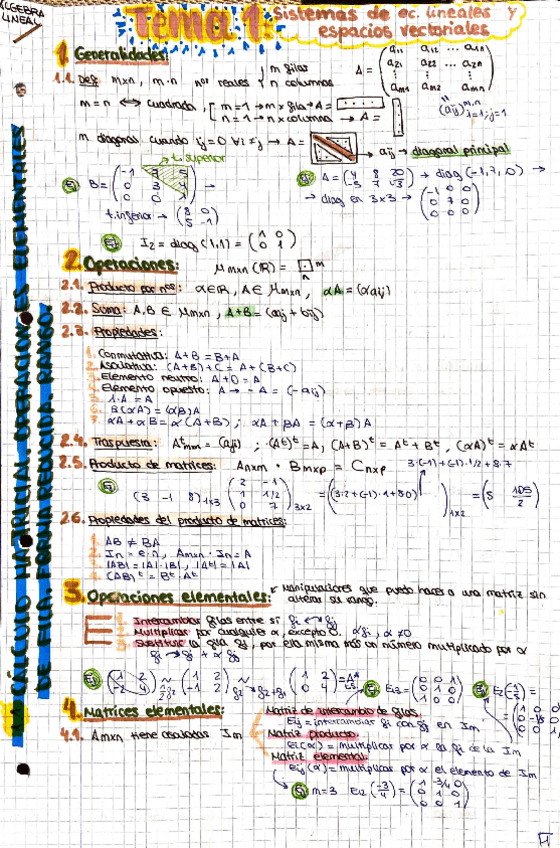 ÁLGEBRA LINEAL
Tema 1: Sistemas de ec. lineales y espacios vectoriales
1.1 CÁLCULO MATRICIAL. OPERACIONES ELEMENTALES
DE FILA. FORMA REDUCIDA. RANGO
1. Generalidades:
1.1. Def m×n, m·n nos reales { m filas
n columnas
A = (a11 a12 ... a1n
a21 a22 ... a2n
am1 am2 ... amn)
(aij)m,n i=1;j=1
m=n ⟺ cuadrada, [ m=1→m× fila→A=
n=1→n× columna → A=
m diagonal cuando ij=0 ∀i≠j → A= → aij → diagonal principal
t. superior
Ej B= (-1 3 5
0 3 4
0 0 1) →
t. inferior → (8 0
5 -1)
Ej A = (4 8 20
-5 7 √3) → diag (-1,7,0) →
→ diag en 3×3 → (-1 0 0
0 7 0
0 0 0)
Ej I2 = diag (1,1) = (1 0
0 1)
2. Operaciones: Mmxn (R) = m
n
2.1. Producto por nos: α∈R, A∈Mmxn, αA = (αaij)
2.2. Suma: A,B ∈ Mmxn, A+B = (aij + bij)
2.3. Propiedades:
1. Conmutativa: A+B = B+A
2. Asociativa: (A+B)+C = A+(B+C)
3. Elemento neutro: A+0 = A
4. Elemento opuesto: A → -A = (-aij)
5. 1·A = A
6. β(αA) = (αβ)A
7. αA + αB = α(A+B); αA + βA = (α+β)A
2.4. Traspuesta: Atnxm = (aji); (At)t = A, (A+B)t = At + Bt, (αA)t = αAt
2.5. Producto de matrices: Anxm · Bmxp = Cnxp
3·(-1)+(-1)·1/2+8·7
Ej (3 -1 8)1x3 (2 -1
1 1/2
0 7)3x2 = (3·2+(-1)·1+8·0)1x2 = (5 105/2)
2.6. Propiedades del producto de matrices:
1. AB ≠ BA
2. In = e.n, Amxn · In = A
3. |AB| = |A|·|B|, |At| = |A|
4. (AB)t = Bt·At
3. Operaciones elementales: * Manipulaciones que puedo hacer a una matriz sin
alterar su rango.
1. Intercambiar filas entre sí fi ↔ fj
2. Multiplicar por cualquier α, excepto 0. αfi, α≠0
3. Sustituir la fila fi, por ella misma más un número multiplicado por α
fi → fi + α fj
Ej (1 2
-2 4) ~ (1 2
-1 2) ~ f2→f2+f1 (1 2
0 4)
Ej E13 = (0 0 1
0 1 0
1 0 0)
4. Matrices elementales:
4.1. Amxn tiene asociadas Im
Matriz de intercambio de filas
Eij = intercambiar fi con fj en Im
Matriz producto
Ei(α) = multiplicar por α la fi de la Im
Matriz elemental
Eij(α) = multiplicar por α el elemento de Im
Ej m=3 E12(-3/4) = (1 -3/4 0
0 1 0
0 0 1)
1